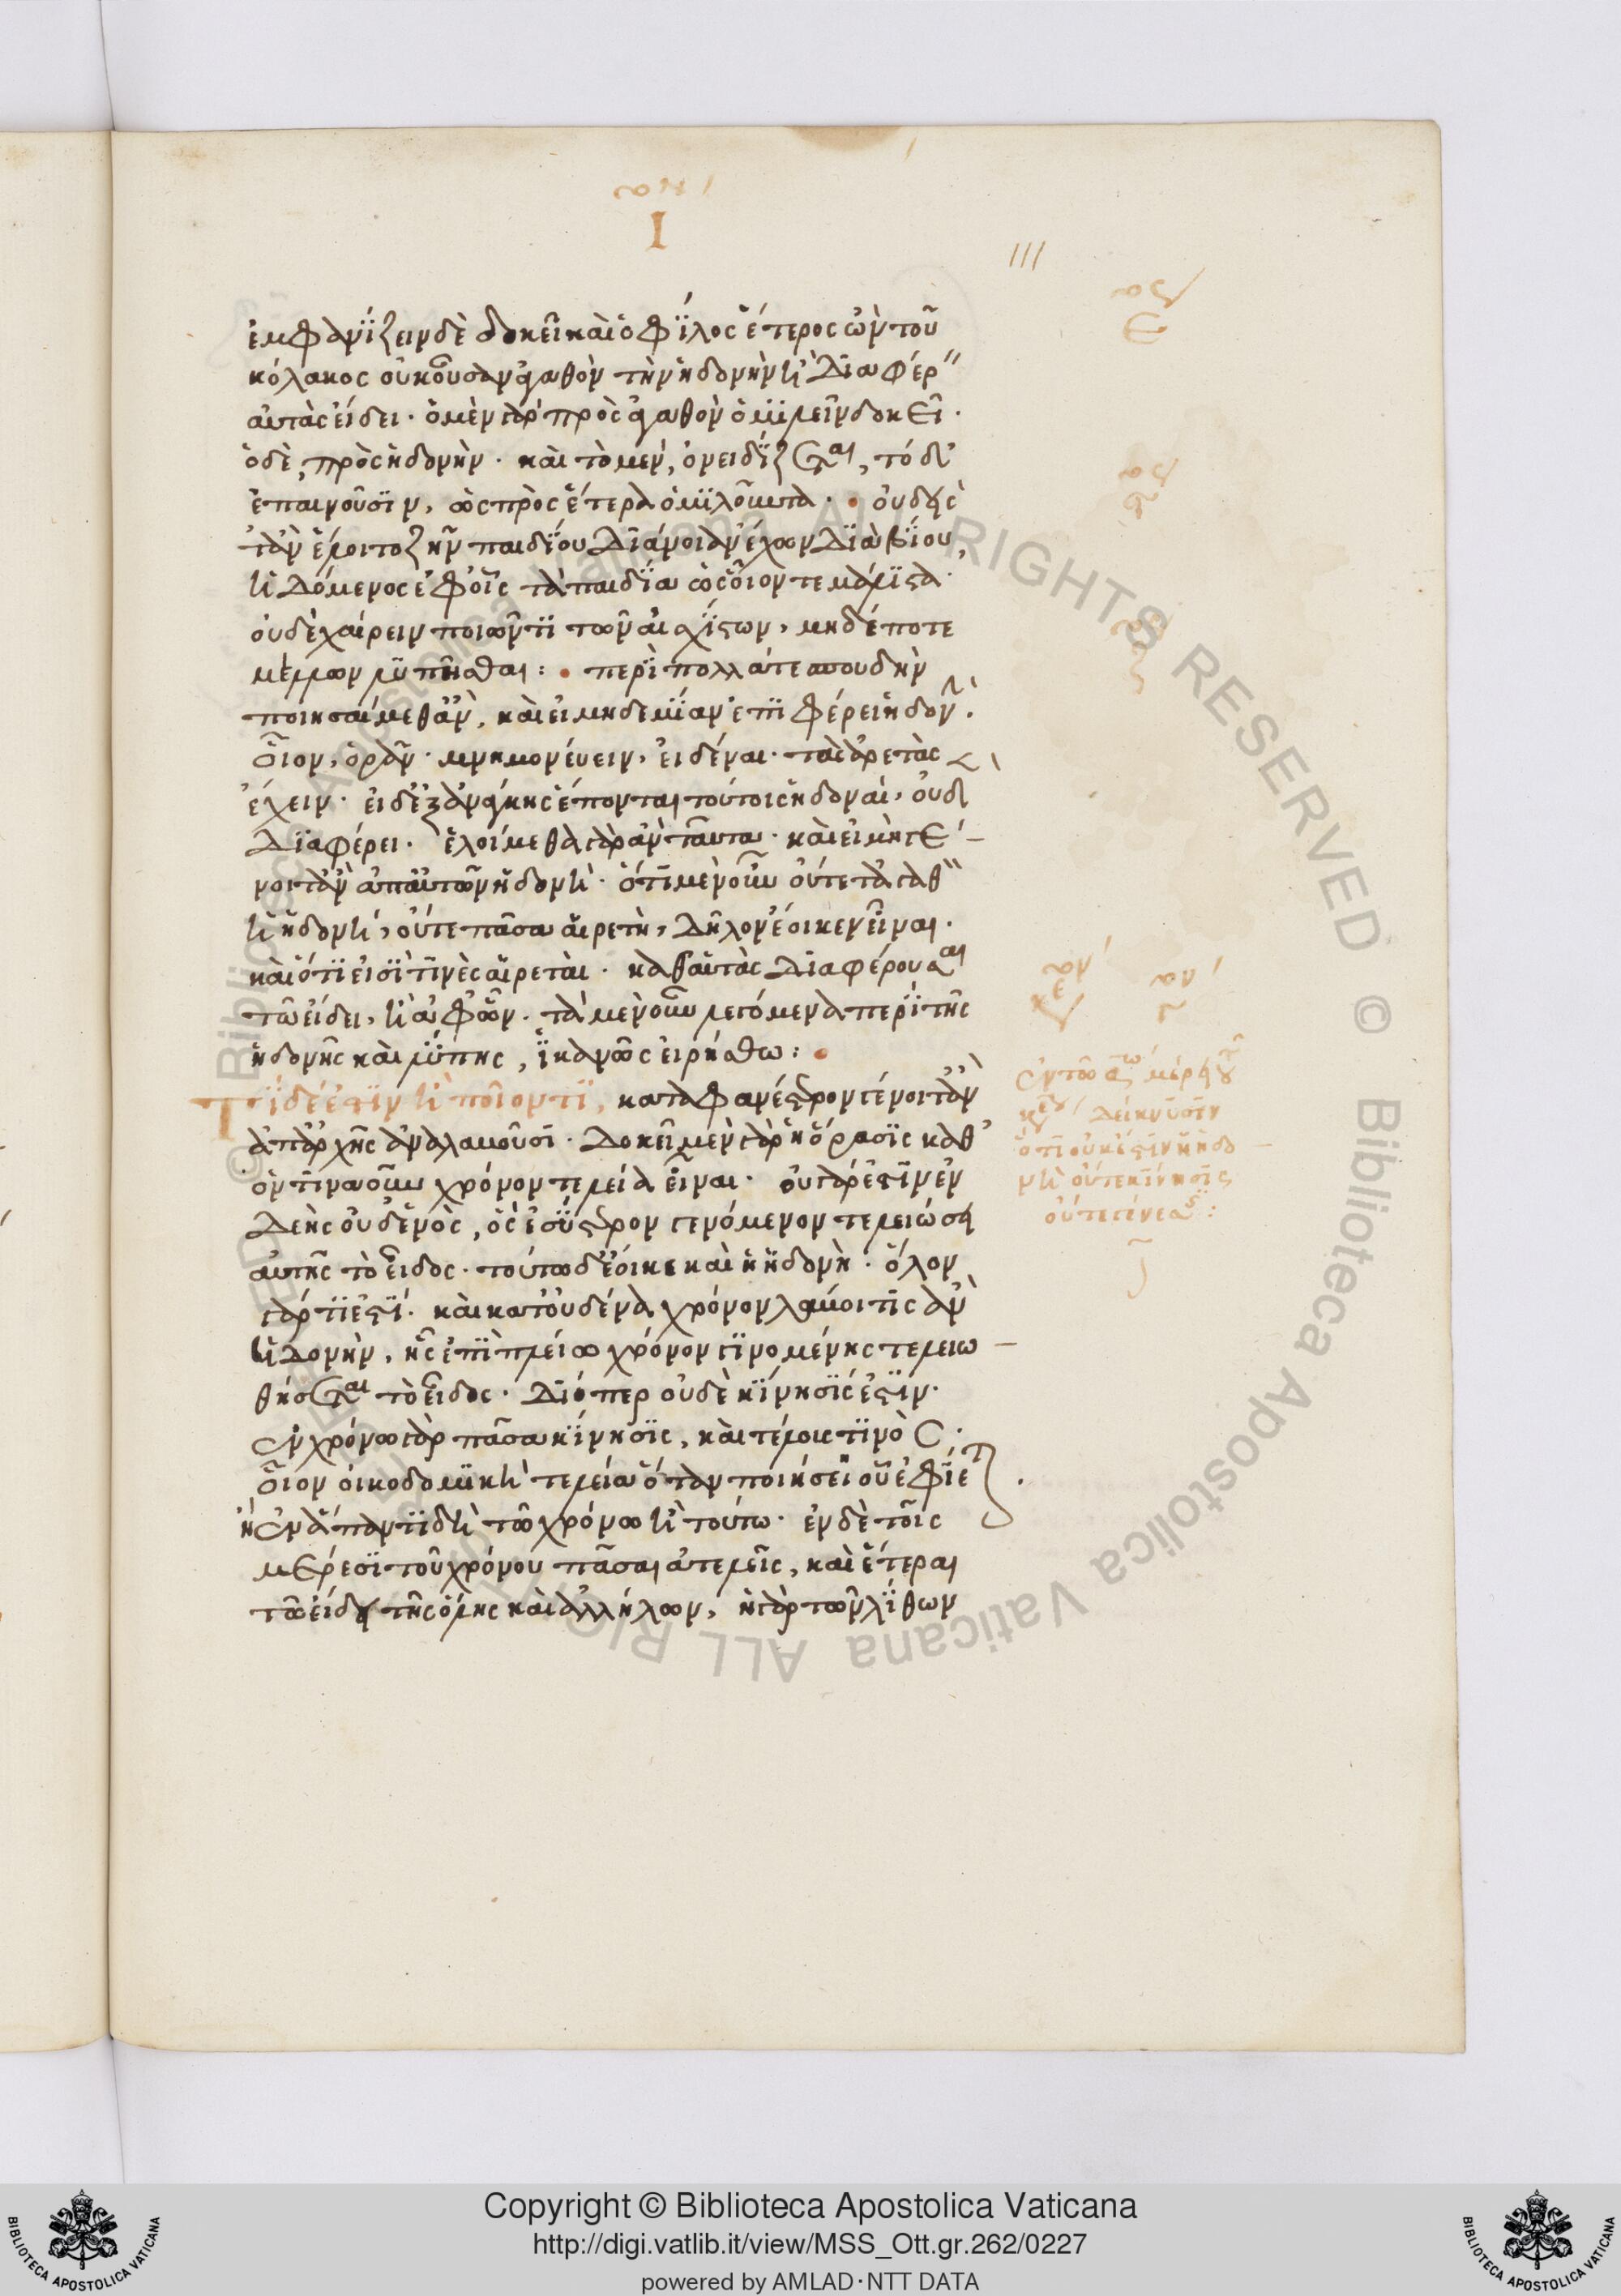 Ι
111
ἐμφανίζειν δὲ δοκεῖ καὶ ὁ φίλος ἕτερος ὢν τοῦ
κόλακος οὐκ οὖσαν ἀγαθὸν τὴν ἡδονὴν ἢ διαφόρ
αυτὰς είδει. ὁ μὲν γὰρ πρὸς ἀγαθὸν ὁμιλεῖν δοκεῖ.
ὁ δὲ, πρὸς ἡδονὴν. καὶ τὸ μεν, ὀνειδίζεται, τόδ
ἐπαινοῦσιν, ὡς πρὸς ἕτερα ὁμιλοῦντα. οὐδείς
τἂν ἕλοιτο ζῆν παιδίου διάνοιαν ἔχων διὰ βίου,
ἡδόμενος ἐφ οἷς τὰ παιδία ὡς οἷόν τε μάλιστα.
οὐδὲ χαίρειν ποιῶν τι τῶν αἰσχίστων, μηδέποτε
μέλλων λυπηθῆναι: περὶ πολλά τε σπουδὴν
ποιησαίμεθ ἂν, καὶ εἰ μηδεμίαν ἐπιφέρει ἡδον.
οἷον, ὁρᾶν. μνημονεύειν, εἰδέναι. τὰς ἀρετὰς
ἔχειν. εἰ δ ἐξ ἀνάγκης ἕπονται τούτοις ἡδοναὶ, οὐδ
διαφέρει. ἑλοίμεθα γὰρ ἂν ταῦτα. καὶ εἰ μὴ γέ-
νοιτ ἂν ἀπ αὐτῶν ἡδονή. ὅτι μὲν οὖν οὔτε τἀγαθ
ἡ ἡδονή, οὔτε πᾶσα αἱρετὴ, δῆλον ἔοικεν εἶναι.
καὶ ὅτι εἰσί τινὲς αἱρεταὶ. καθ αὑτὰς διαφέρουσαι
τῶ είδει, ἢ ἀφ ὧν. τὰ μὲν οὖν λεγόμενα περὶ τῆς
ἡδονῆς καὶ λύπης, ἱκανῶς εἰρήσθω:
Τί δέ ἐστιν ἢ ποῖον τι, καταφανέστερον γένοιτ ἂν
ἀπ ἀρχῆς ἀναλαβοῦσι. δοκεῖ μὲν γὰρ ἡ ὅρασις καθ
ὃν τινα οὖν χρόνον τελεία εἶναι. οὐ γάρ ἐστιν ἐν
δεὴς οὐδενὸς, ὃ εἰς ὕστερον γενόμενον τελειώσει
αὐτῆς τὸ εἶδος. τούτω δ ἔοικε καὶ ἡ ἡδονὴ. ὅλον
γάρ τί ἐστί. καὶ κατ οὐδένα χρόνον λάβοι τὶς ἂν
ἡδονὴν, ἧς ἐπὶ πλείω χρόνον γινομένης τελειω-
θήσεται τὸ εἶδος. διόπερ οὐδὲ κίνησίς ἐστίν.
ἐν χρόνω γὰρ πᾶσα κίνησις, καὶ τέλους τινὸς.
οἷον οἰκοδομικὴ τελεία ὅταν ποιήσει οὗ ἐφίετ
ἢ ἐν ἅπαντι δὴ τῶ χρόνω ἢ τούτω. ἐν δὲ τοῖς
μέρεσι τοῦ χρόνου πᾶσαι ἀτελεῖς, καὶ ἕτεραι
τῶ εἴδει τῆς ὅλης καὶ ἀλλήλων, ἡ γὰρ τῶν λίθων
δείκνυσιν
ὅτι οὐκ ἔστιν ἡ ἡδο
νὴ οὔτε κίνησις
οὔτε γένεσις:
Copyright © Biblioteca Apostolica Vaticana
http://digi.vatlib.it/view/MSS_Ott.gr.262/0227
powered by AMLAD·NTT DATA